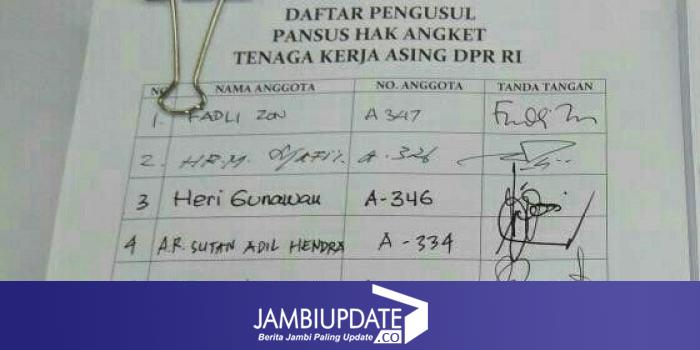 DAFTAR PENGUSUL
PANSUS HAK ANGKET
TENAGA KERJA ASING DPR RI
NO NAMA ANGGOTA NO. ANGGOTA TANDA TANGAN
1. FADLI ZON A 347
2. HR.M. A. 326
3 Heri Gunawan A-346
4 A.R. SUTAN ADIL HENDRA A-334
JAMBIUPDATE
Berita Jambi Paling Update .CO